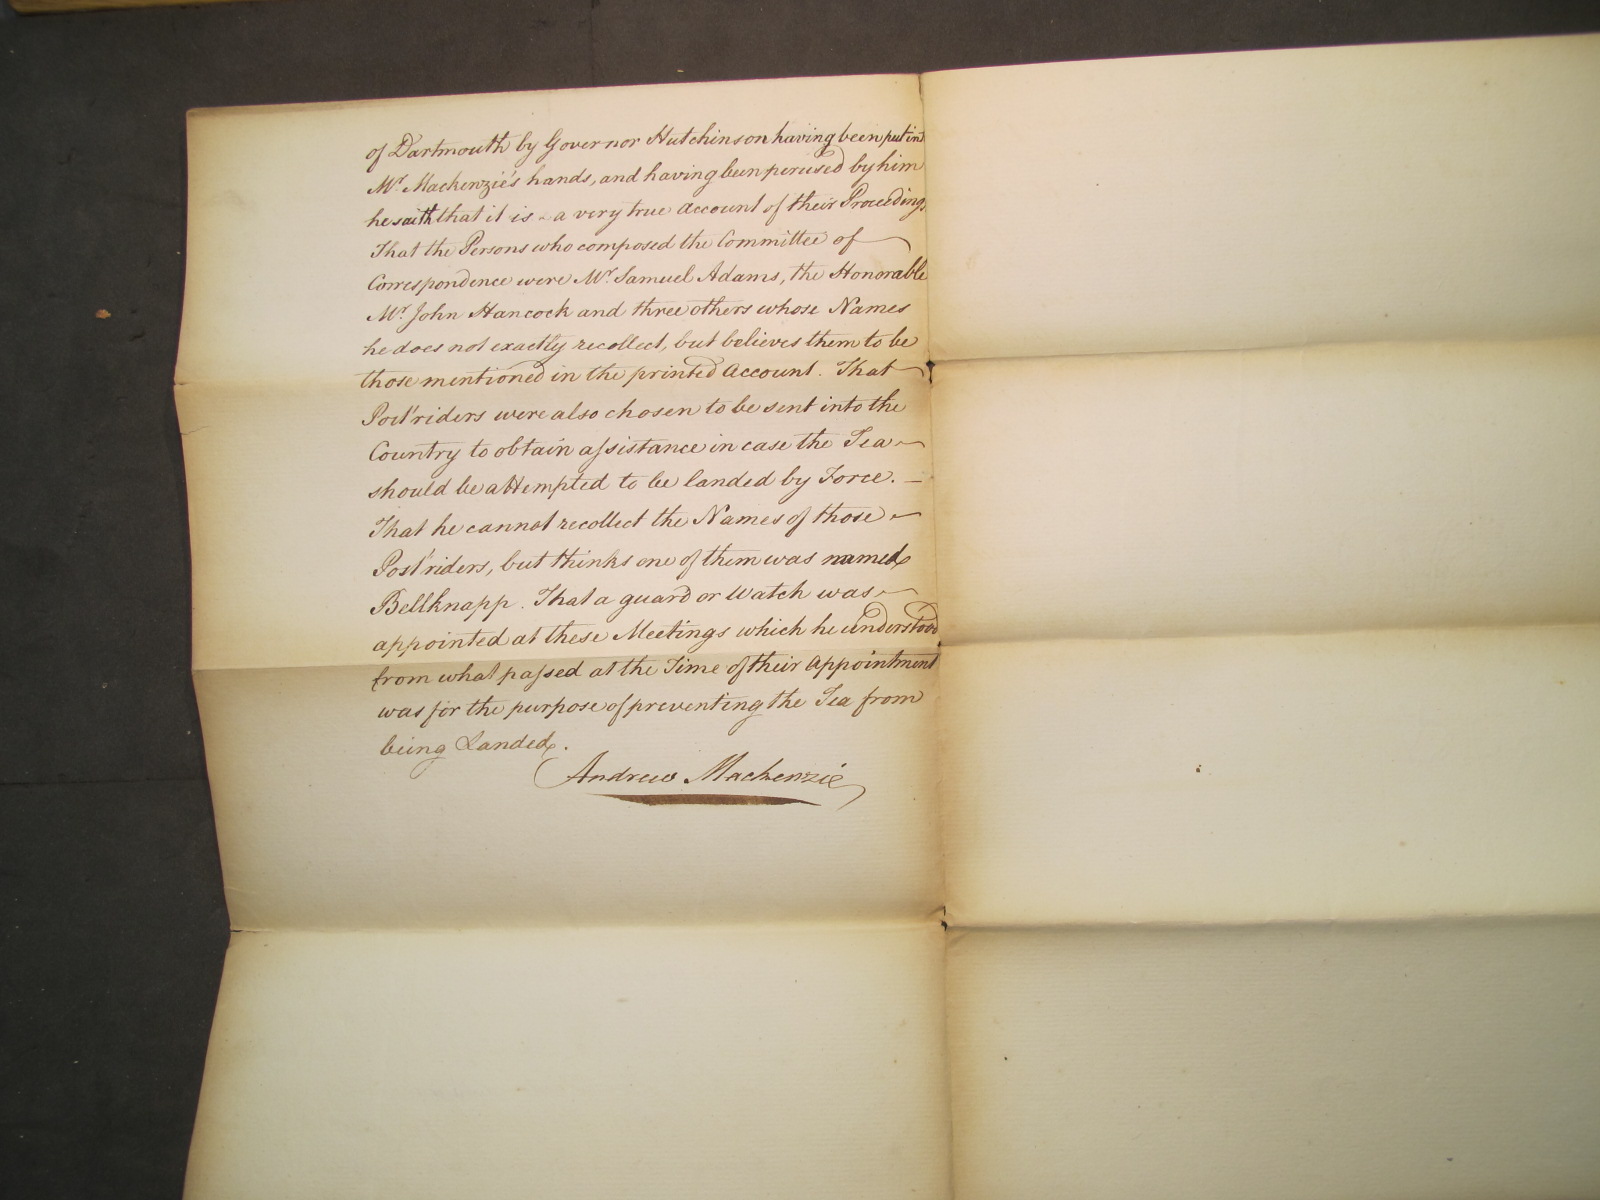 of Dartmouth by Governor Hutchinson having been put into
Mr. Mackenzie's hands, and having been perused by him
he saith that it is a very true Account of their Proceedings
That the Persons who composed the Committee of
Correspondence were Mr. Samuel Adams, the Honorable
Mr. John Hancock and three others whose Names
he does not exactly recollect, but believes them to be
those mentioned in the printed Account. That
Post riders were also chosen to be sent into the
Country to obtain assistance in case the Tea
should be attempted to be landed by Force. —
That he cannot recollect the Names of those
Post riders, but thinks one of them was named
Bellknapp. That a guard or Watch was
appointed at these Meetings which he understood
from what passed at the Time of their Appointment
was for the purpose of preventing the Tea from
being Landed.
Andrew Mackenzie